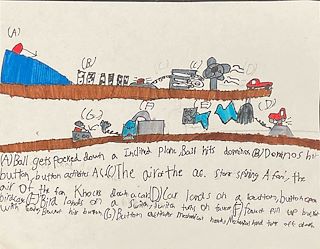 (A)
(B)
(C)
(D)
(E)
(F)
(G)
(A) Ball gets pocked down a Inclind plane Ball hits dominos (B) Dominos hit
button, button activits AC (C) The air of the ac. Start spining A fan, the
air of the fan Knocks down a car (D) Car lands on a button, button opens
birdcage (E) Bird lands on a switch, switch turns on faucet (F) faucet fill up bucket
with water, bucket hit button (G) Button activits mechanical hand, Mechanical hand turn off alarm